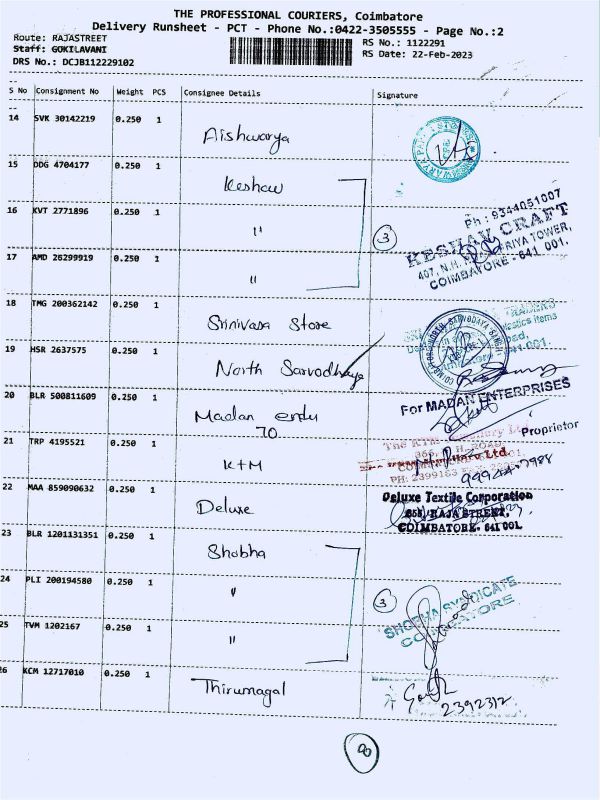 THE PROFESSIONAL COURIERS, Coimbatore
Delivery Runsheet - PCT - Phone No.:0422-3505555 - Page No.:2
Route: RAJASTREET
RS No.: 1122291
Staff: GOKILAVANI
RS Date: 22-Feb-2023
DRS No.: DCJB112229102
S No Consignment No Weight PCS Consignee Details Signature
14 SVK 30142219 0.250 1 Aishwarya
15 DDG 4704177 0.250 1 Keshav
16 KVT 2771896 0.250 1 "
3
Ph : 9344051007
KESHAV CRAFT
407, N.H. TOWER,
COIMBATORE - 641 001.
17 AMD 26299919 0.250 1 "
18 TMG 200362142 0.250 1 Srinivasa Store
19 HSR 2637575 0.250 1 North Sarvodhaya
20 BLR 500811609 0.250 1 Madan
70
For MADAN ENTERPRISES
Proprietor
21 TRP 4195521 0.250 1 KTM
22 MAA 859090632 0.250 1 Deluxe
Deluxe Textile Corporation
RAJA STREET,
COIMBATORE - 641 001.
23 BLR 1201131351 0.250 1 Shobha
24 PLI 200194580 0.250 1 "
3
SHOBHA SYNDICATE
COIMBATORE
25 TVM 1202167 0.250 1 "
26 KCM 12717010 0.250 1 Thirumagal
2392312
8